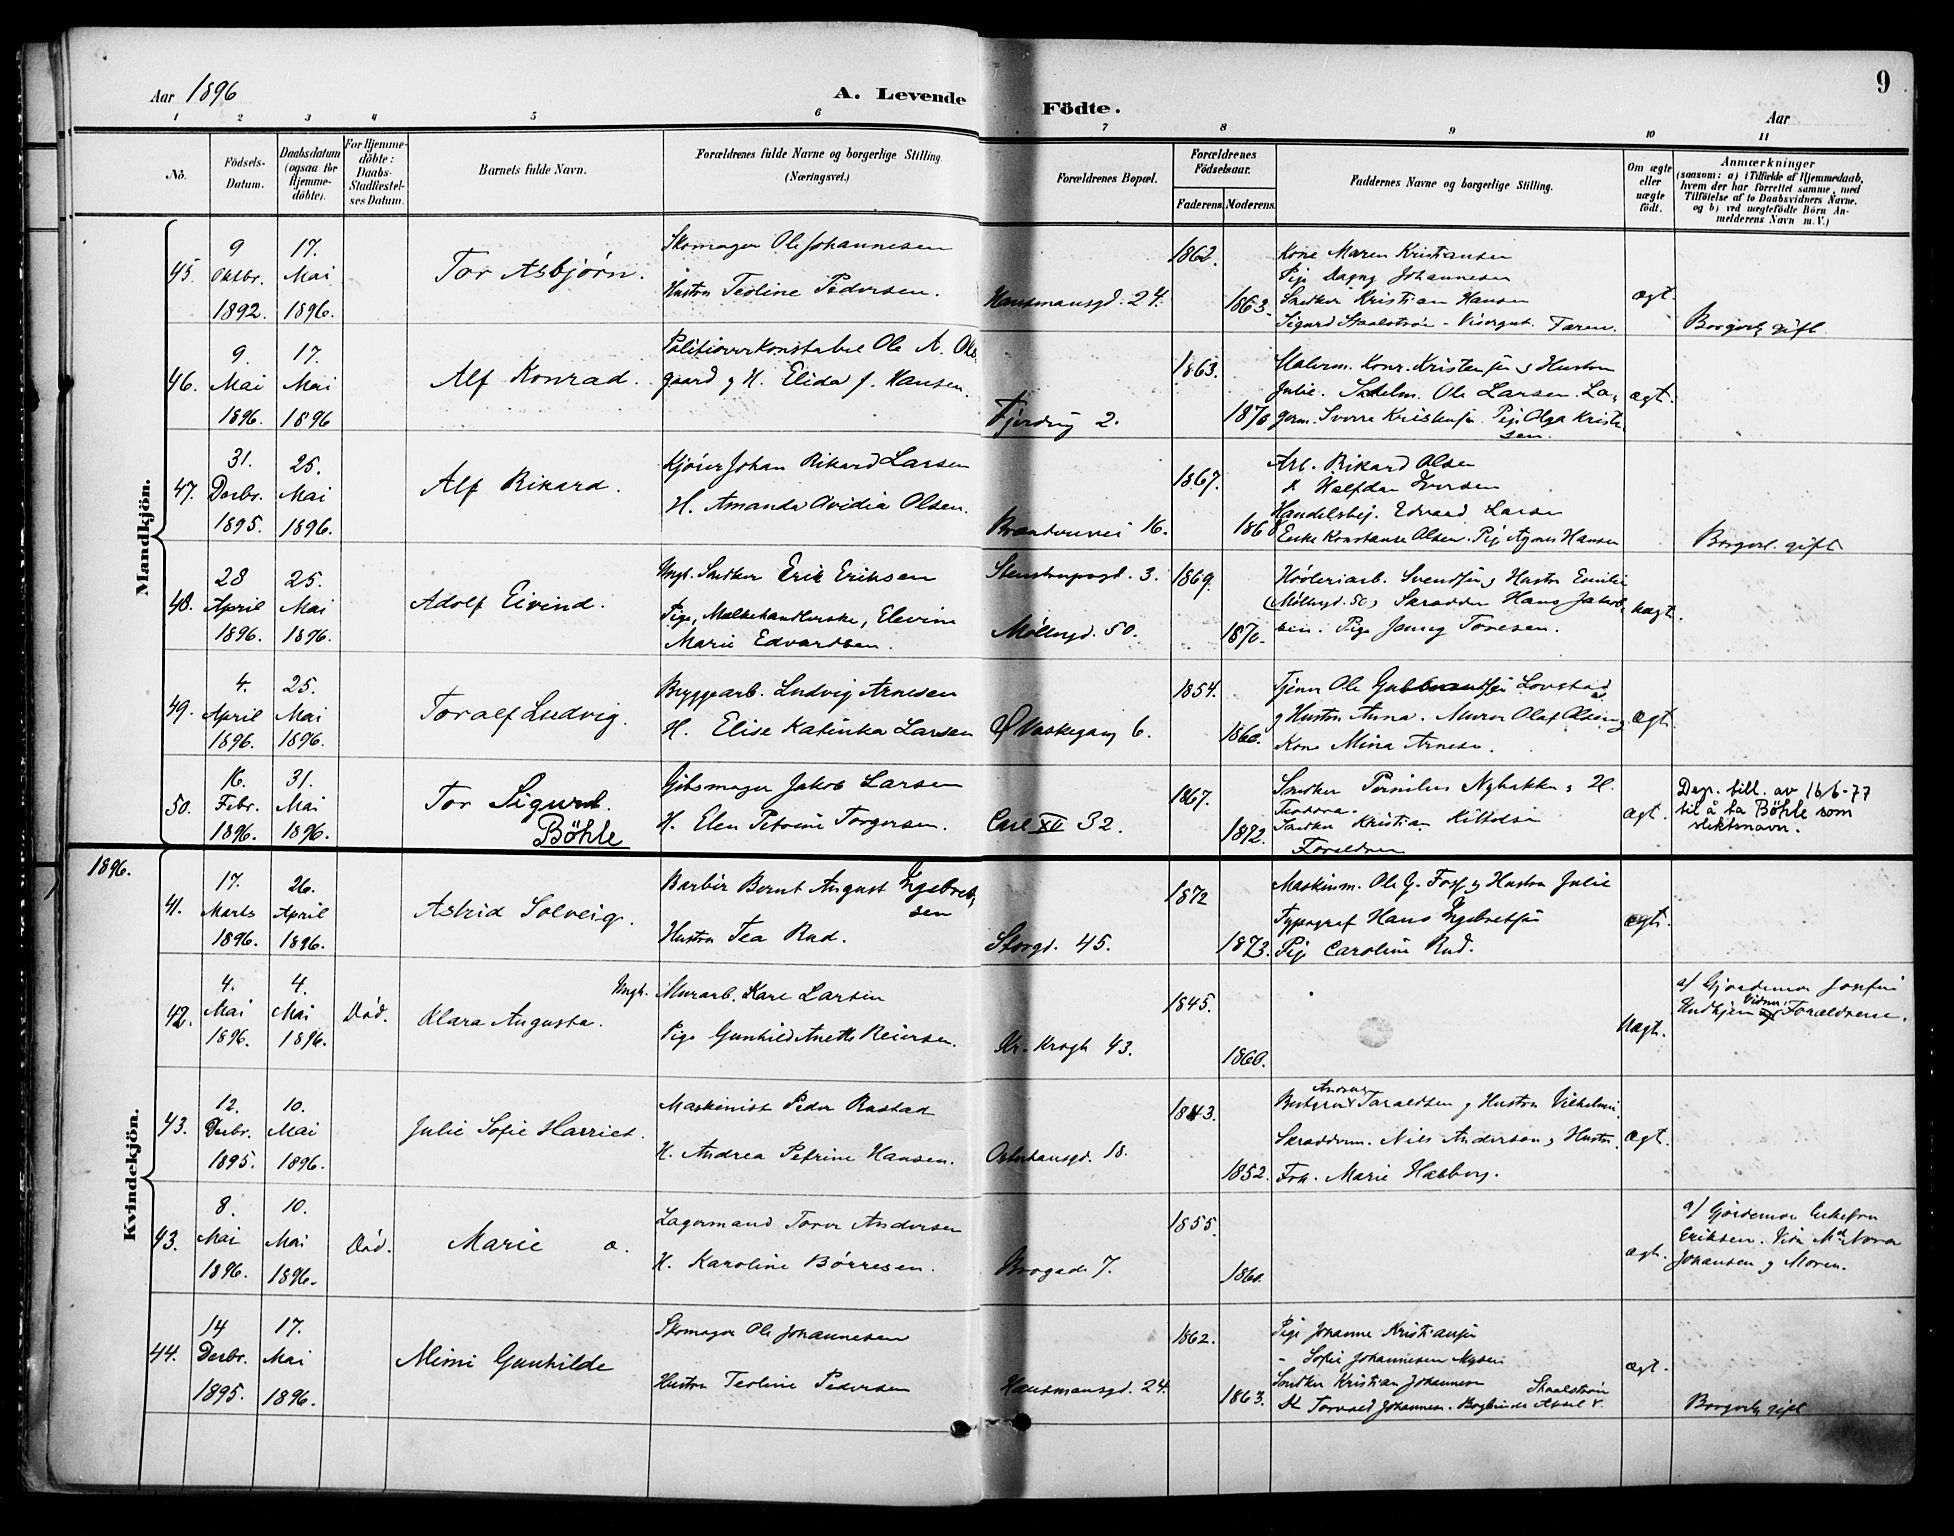 Aar 1896
A. Levende
Födte.
9
Aar
1 2 3 4 5 6 7 8 9 10 11
No.
Födsels-
Datum.
Daabsdatum
(ogsaa for
Hjemme-
döbte).
For Hjemme-
döbte:
Daabs-
Stadfæstel-
ses Datum.
Barnets fulde Navn.
Forældrenes fulde Navne og borgerlige Stilling.
(Næringsvei.)
Forældrenes Bopæl.
Forældrenes
Födselsaar.
Faderens.
Moderens.
Faddernes Navne og borgerlige Stilling.
Om ægte
eller
uægte
født.
Anmærkninger
(saasom: a) i Tilfælde af Hjemmedaab,
hvem der har forrettet samme, med
Tilföielse af to Daabsvidners Navne,
og b) ved uægtefödte Börn An-
melderens Navn m. V.)
Mandkjön.
45.
9
Oktbr.
1892.
17.
Mai
1896.
Tor Asbjørn.
Skomager Ole Johannesen
Hustru Teoline Pedersen.
Hausmansgd. 24.
1862.
1863.
Kone Maren Kristiansen
Pige Dagny Johannesen
Snedker Kristian Hansen
Sigurd Staalstrøm - Visergut. Faren.
ægt.
Borgerl. gift.
46.
9.
Mai
1896.
17.
Mai
1896
Alf Konrad.
Politioverkonstabel Ole A. Ols-
gaard g H. Elida f. Hansen.
Fjerding 2.
1863.
1870
Malerm. Konr. Kristensen g Hustru
Julie. Ole Larsen. La-
germ. Sverre Kristensen. Pige Olga Kristen-
sen.
ægt.
47.
31.
Decbr.
1895.
25.
Mai
1896.
Alf Rikard.
Kjører Johan Rikard Larsen
H. Amanda Ovidia Olsen.
16.
1867.
1868
Arb. Rikard Olsen
Halfdan Iversen
Handelsbej. Edvard Larsen
Enke Konstanse Olsen. Pige Agnes Hansen
Borgerl. gift
48.
28
April
1896.
25.
Mai
1896.
Adolf Eivind.
Ungk. Snedker Erik Eriksen
Pige, Melkehandlerske, Elevine
Marie Edvardsen.
Stenstrupsgd. 3.
Møllergd. 50.
1869.
1870.
Høvleriarb. Svendsen g Hustru Emilie
(Møllergd. 50) Hans Jakob-
sen. Pige Jenny Toresen.
uægt.
49.
4.
April
1896.
25.
Mai
1896.
Toralf Ludvig.
Bryggearb. Ludvig Arnesen
H. Elise Katinka Larsen
Ø Vaskegang 6.
1854.
1860.
Tjener Ole Gulbrandsen Lovstad
g Hustru Anna. Murer Olaf Olsen g
Kone Mina Arnesen.
ægt.
50.
16.
Febr.
1896.
31.
Mai
1896.
Tor Sigurd.
Böhle
Gibsmager Jakob Larsen
H. Elen Petrine Torgersen.
Carl XII 32.
1867.
1872.
Snedker Pernilus Nybakken g H.
Teodora.
Snedker Kristian Kittelsen
Forældrene
ægt.
Dep. bill. av 16/6-77
til å ta Böhle som
slektsnavn.
1896.
Kvindekjön.
41.
17.
Marts
1896.
26.
April
1896.
Astrid Solveig.
Barbér Bernt August Engebret-
sen
Hustru Tea Rud.
Storgd. 45.
1872
1873.
Maskinm. Ole G. Foss g Hustru Julie
Typograf Hans Engebretsen
Pige Caroline Rud.
ægt.
42.
4.
Mai
1896.
4.
Mai
1896.
Død.
Klara Augusta.
Ungk. Murarb. Karl Larsen
Pige Gunhild Anette Reiersen.
Kr. Krogh 43.
1845.
1860.
Uægt.
a) Gjordemor Josefine
Vidner
Forældrene.
43.
12.
Decbr.
1895.
10.
Mai
1896.
Julie Sofie Harriet.
Maskinist Peder Rastad
H. Andrea Petrine Hansen.
Osterhausgd. 18.
1843.
1852.
Andreas
Bestyrer Taraldsen g Hustru Vilhelmine
Nils Anderson g Hustru.
Frk. Marie Hasberg.
ægt.
43.
8.
Mai
1896.
10.
Mai
1896.
Død.
Marie a.
Lagermand Torer Andersen
H. Karoline Børresen.
Brogade 7.
1855.
1860.
ægt.
a) Gjordemor Enkefru
Eriksen. Vidn. Md Nora
Johansen g Moren.
44.
14
Decbr.
1895.
17.
Mai
1896.
Mimi Gunhilde
Skomager Ole Johannesen
Hustru Teoline Pedersen
Hausmansgd. 24.
1862.
1863.
Pige Johanne Kristiansen
- Sofie Johannesen Mysen
Snedker Kristian Johannesen
Staalstrøm
St. Torvald Johannesen. Bogbinder Aksel v.
ægt.
Borgerl. gift